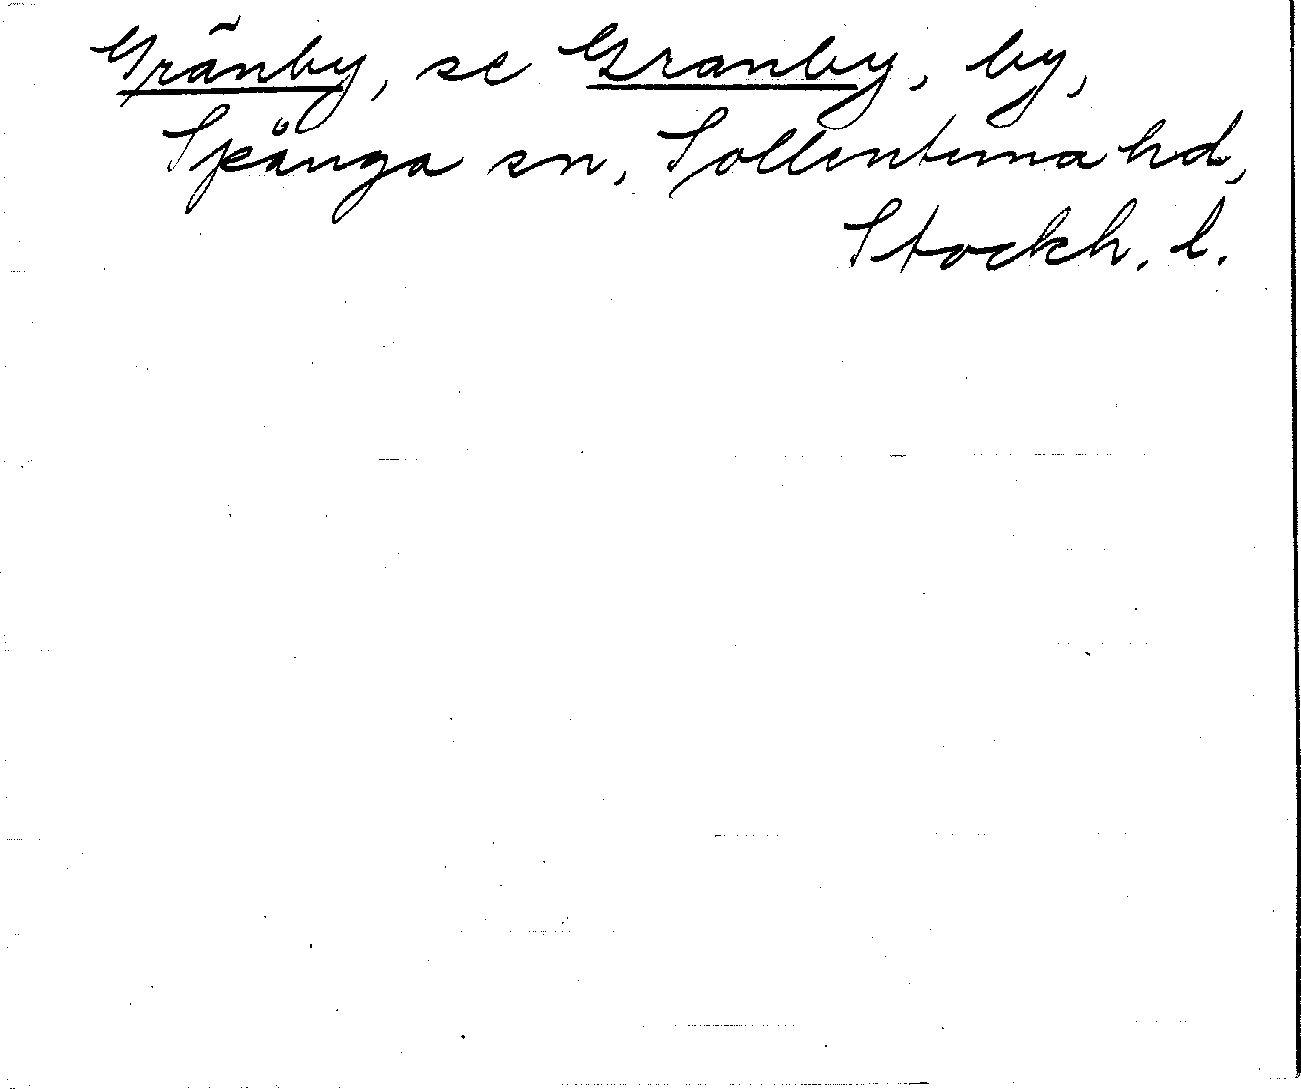 Gränby, se Granby, by,
Spånga sn, Sollentuna hd,
Stockh. l.